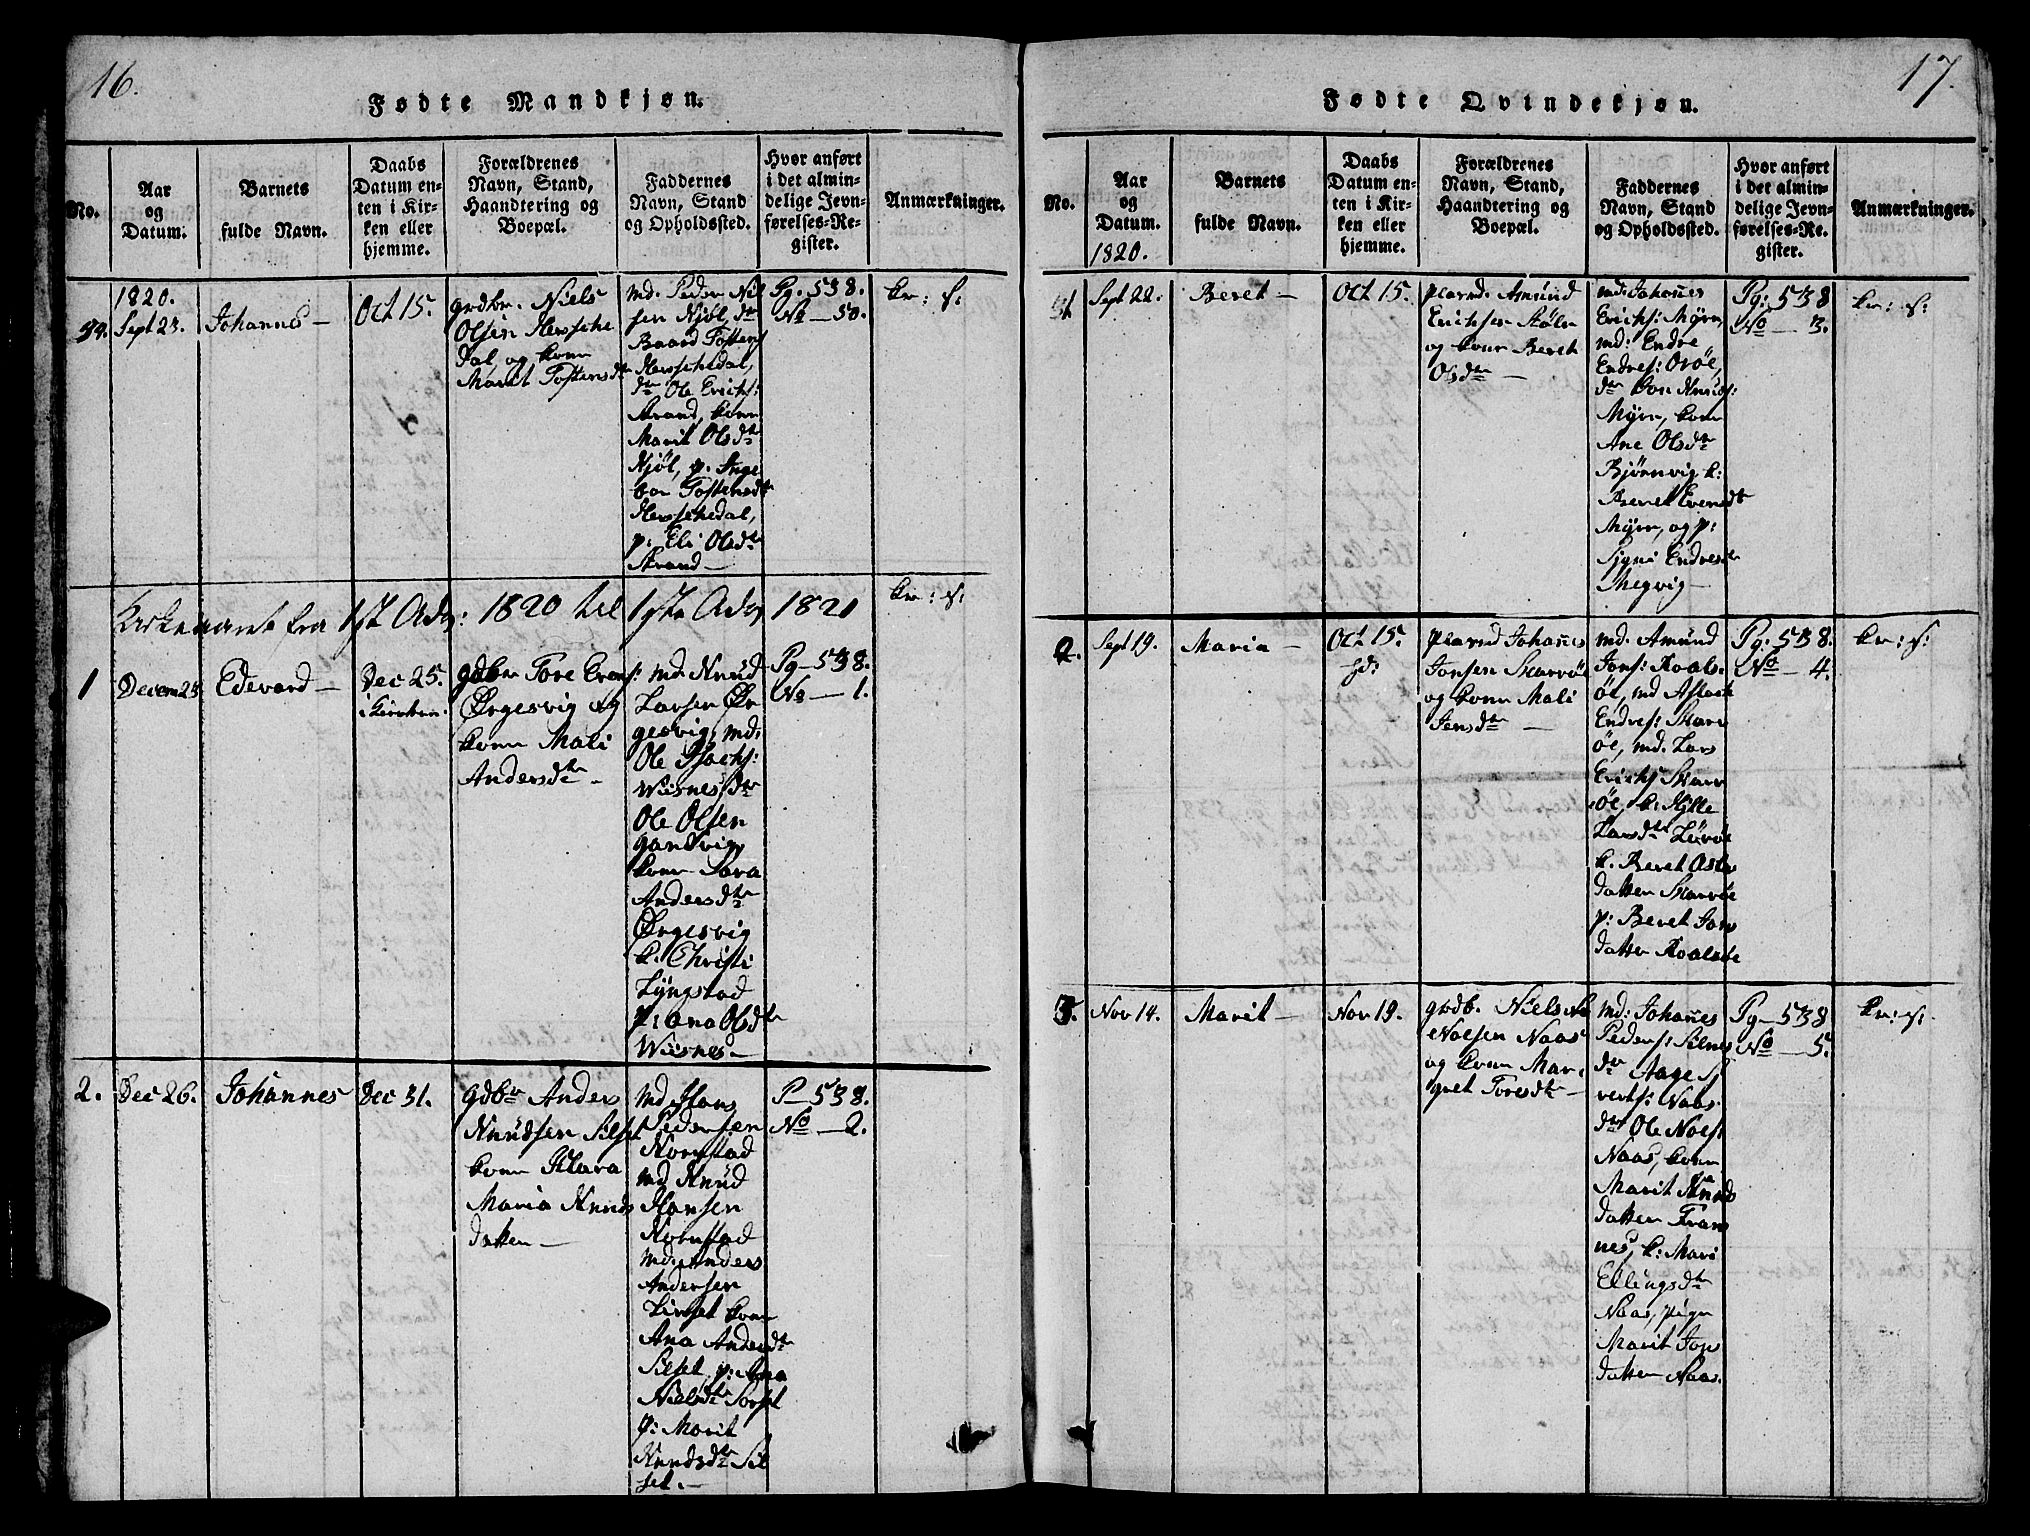 16.
Fødte Mandkjøn.
No.
Aar
og
Datum.
Barnets
fulde Navn.
Daabs
Datum en-
ten i Kir-
ken eller
hjemme.
Forældrenes
Navn, Stand,
Haandtering og
Boepæl.
Faddernes
Navn, Stand
og Opholdssted.
Hvor anført
i det almin-
delige Jevn-
førelses-Re-
gister.
Anmærkninger.
1820.
Sept 23.
Johannes—
Oct 15.
grdbr. Niels
Olsen
dal, og kone
Marit Tostensdtr
md. Peder Niel
sen Njøl, dtr
Baard Tostens
dr Ole Erichs:
Strand, kone
Marit Olsdtr
Njøl, p. Inge
bor Tostensdtr
p: Eli Olsdtr
Strand—
Pg. 538.
No — 50.
kr: s:
Kirkeaaret fra 1st Adv: 1820 til 1ste Adv 1821
kr: s:
1
Decem 23
Edevard—
Dec 25.
i Kirken.
gdbr Tore Ens:
Ørgesvig og
kone Mali
Andersdtr—
md. Knud
Larsen Ør
gesvig, md.
Ole Isachs:
Wisnes, dtr
Ole Olsen
gankvig
kone Sara
Andersdtr
Ørgesvig
k. Christi
Lyngstad
p: ana Olsdtr
Wisnes—
Pg—538.
No — 1.
2.
Dec 26.
Johannes
Dec 31.
gdbr Anders
Knudsen Silset
kone Klara
Maria Knuds
datter—
md. Hans
Pedersen
Kornstad
md Knud
Hansen
Kornstad
md. anders
Andersen
Lirset kone
Ana Andersdtr
Silset, p: Ana
Nielsdtr Sorset
p: Marit
Knudsdtr Sil
set.—
P—538.
No —2.
17.
Fødte Qvindekjøn.
No.
Aar
og
Datum.
1820.
Barnets
fulde Navn.
Daabs
Datum en-
ten i Kir-
ken eller
hjemme.
Forældrenes
Navn, Stand,
Haandtering og
Boepæl.
Faddernes
Navn, Stand
og Opholdssted.
Hvor anført
i det almin-
delige Jevn-
førelses-Re-
gister.
Anmærkninger.
Sept 22.
Beret—
Oct 15.
Amund
Erichsen
og kone Beret
Olsdtr—
md: Johanes
Erichs: Myrn
md: Endre
Endres: Orøe,
dr Jon Knuds:
Myrn, kone
Ane Olsdtr
Bjørnvig k:
Beret Evensdtr
Myrn, og p:
Signi Endresdtr
Megvig—
Pg: 538
No — 3.
kr: s:
2.
Sept 19.
Maria—
Oct 15.
Johannes
Jonsen Skarrøe
og kone Mali
Jensdtr—
md. Amund
Jons: Koals
øe, md Aslack
Endres: Skarr
øe, md. Lars
Erichs Skarr
øe, k: Kitte
Larsdtr
k. Beret Asla
datter Skarrøe
p: Beret Jons
datter Koalsøe
Pg: 538.
No — 4.
kr: s:
3.
Nov 14.
Marit—
Nov 19.
grdb. Niels
Nolsen Naas
og kone Mar
gret Toresdtr—
md: Johanes
Peders: Silnes
dr Aage S
verts: Naas
dr Ole Nols:
Naas, kone
Marit Knuds
datter Fran
nes, k: Mari
Ellingsdtr
Naas, pige
Marit Jons
datter Naas.
Pg—538
No — 5.
kr: s: